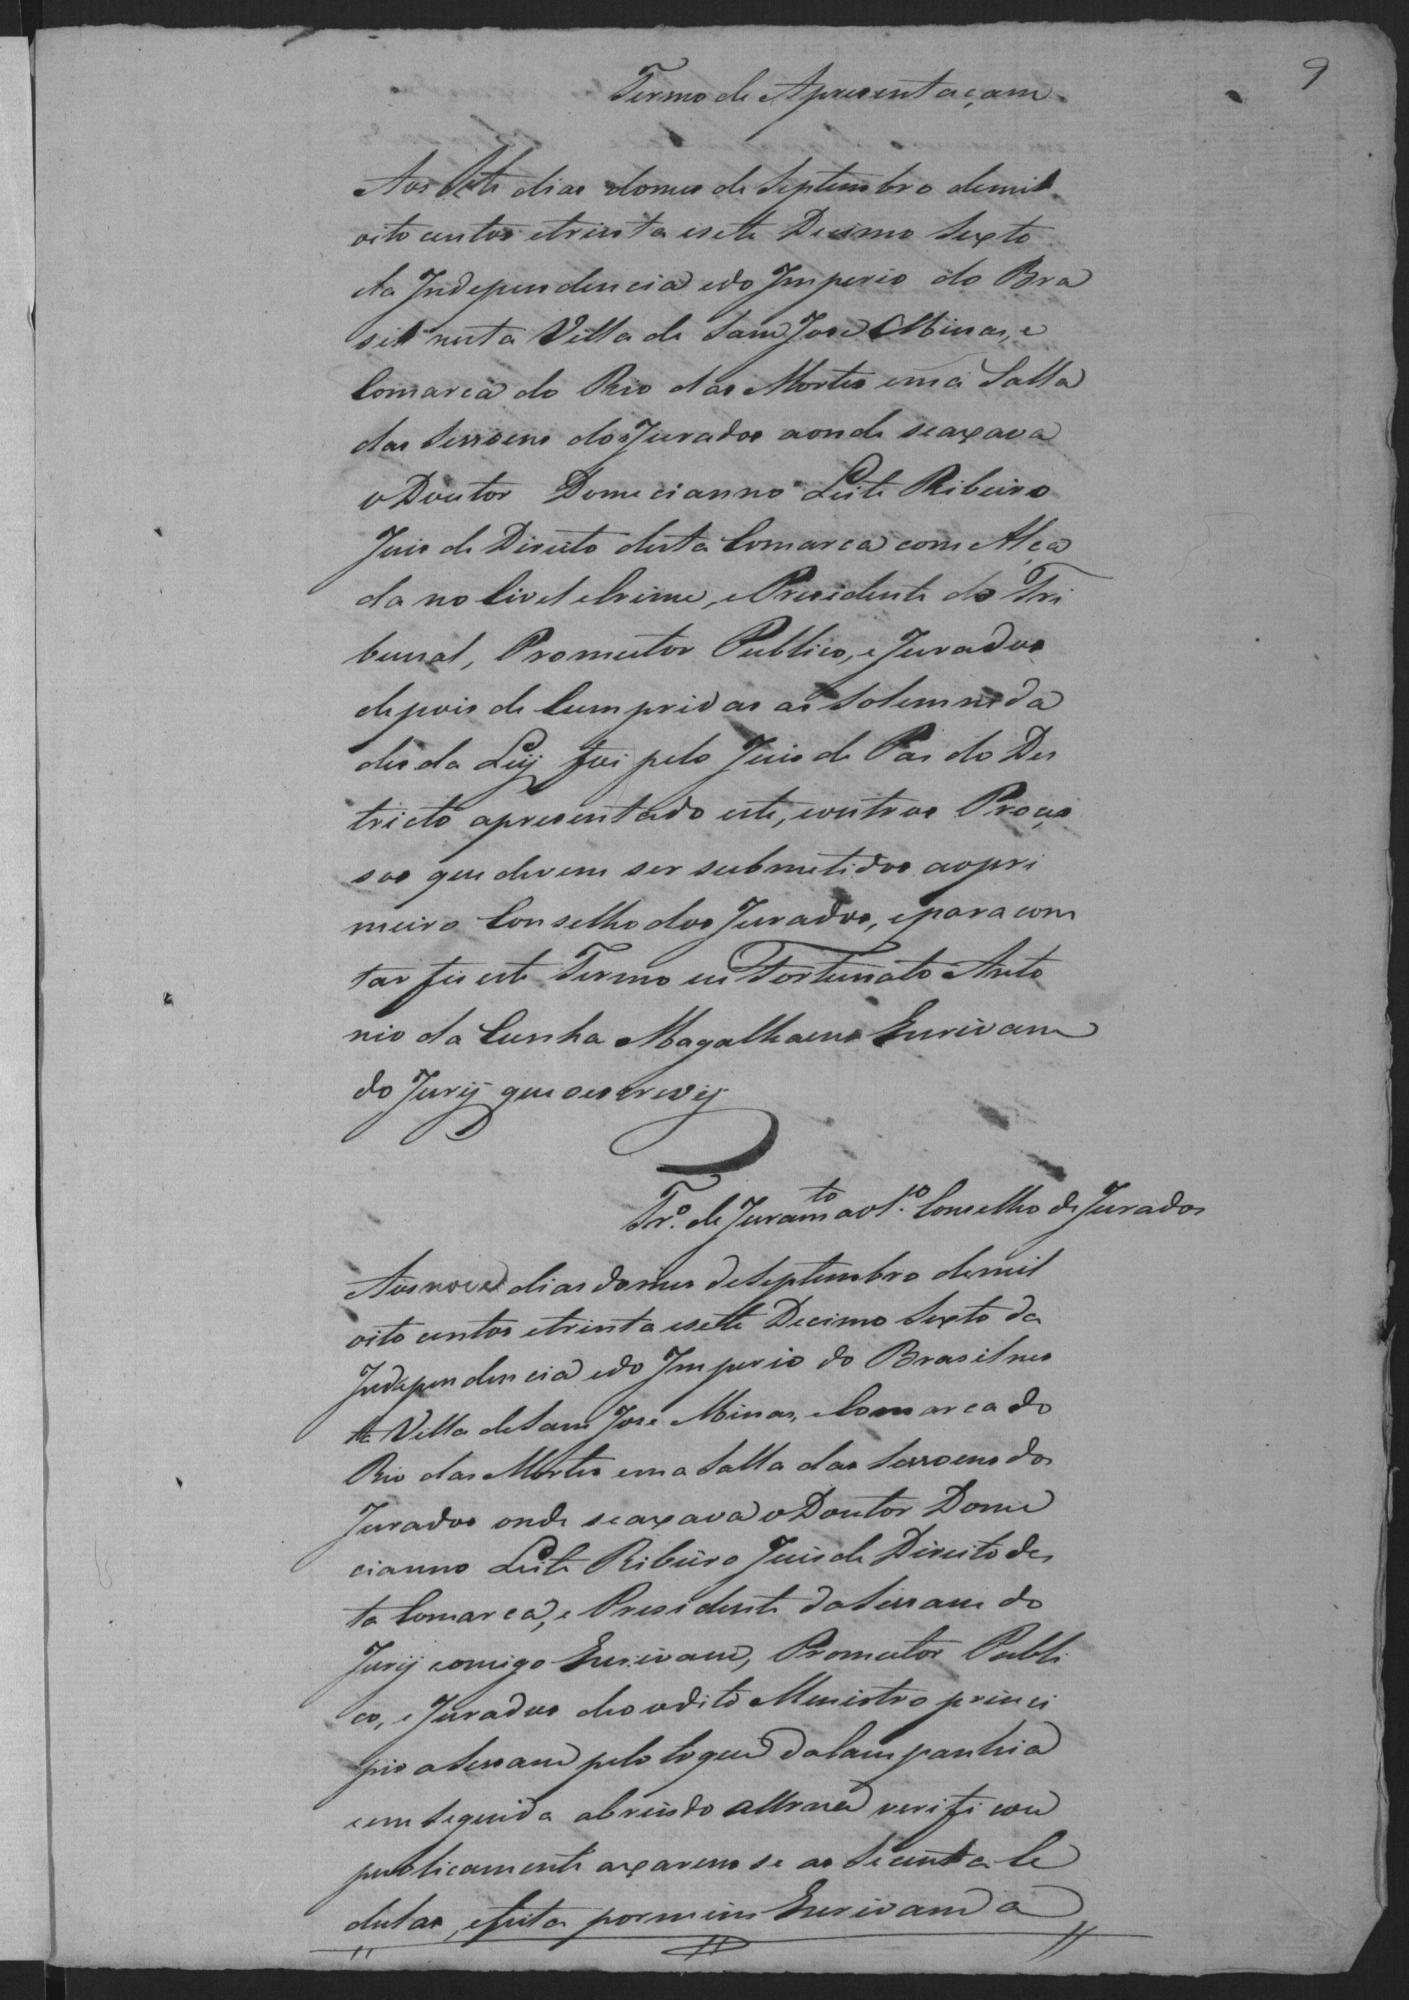 9
Termo de Apresentaçam
Aos Sete dias domes de Septembro demil
oito centos etrinta esete Decimo Sexto
da Independencia edo Imperio do Bra
sil nesta Villa de Sam Jose Minas, e
Comarca do Rio das Mortes em a Salla
das Sessoens dos Jurados aonde seaxava
o Doutor Domecianno Leite Ribeiro
Juis de Direito desta Comarca com Alça
da no Civel eCrime, e Presidente do Tri
bunal, Promoutor Publico, e Jurados
depois de Cumpridas as Solemneda
des da Ley foi pelo Juis de Pas do Des
tricto apresentado este, eoutros Proces
sos que devem ser submetidos aopri
meiro Conselho dos Jurados, epara cons
tar fis este Termo eu Fortunato Anto
nio da Cunha Magalhaens Escrivam
do Jurij que oescrevij
Tr.º de Juram.to ao 1.º Conselho de Jurados
Aos nove dias domes deSeptembro demil
oito centos etrinta esette Decimo Sexto da
Independencia edo Imperio do Brasil nes
ta Villa deSam Jose Minas, eComarca do
Rio das Mortes em a Salla das Sessoens dos
Jurados onde seaxava o Doutor Dome
cianno Leite Ribeiro Juis de Direito des
ta Comarca, e Presidente daSessam do
Jurij comigo Escrivam, Promoutor Publi
co, e Jurados deo odito Ministro princi
pio aSessam pelo toque daCampanhia
eem seguida abrindo aUrna verificou
publicamente axarem se as Secenta Ce
dulas, efeita por mim Escrivam a